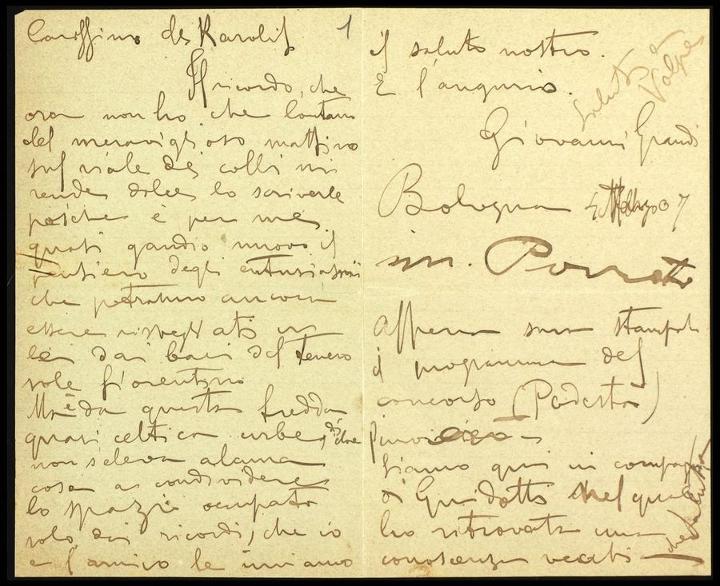 Carissimo de Karolis
1
Il ricordo, che
ora non ho che lontano
del meraviglioso mattino
sul viale dei colli mi
rende dolce lo scriverle
poiché è per me
quasi gaudio nuovo il
pensiero degli entusiasmi
che potranno ancora
essere risvegliati in
lei dai baci del tenero
sole fiorentino
Ma da questa fredda
quasi celtica urbe, dove
non s'eleva alcuna
cosa a condividere
lo spazio occupato
solo dai ricordi, che io
e l'amico le inviamo
il saluto nostro.
E l'augurio.
Giovanni Grandi
saluti a Volpe
Bologna 4 Marzo 07
Appena sarà stampato
il programma del
concorso (Podestà)
Siamo qui in compagnia
di Guidotti nel quale
ho ritrovato una
conoscenza vecchia